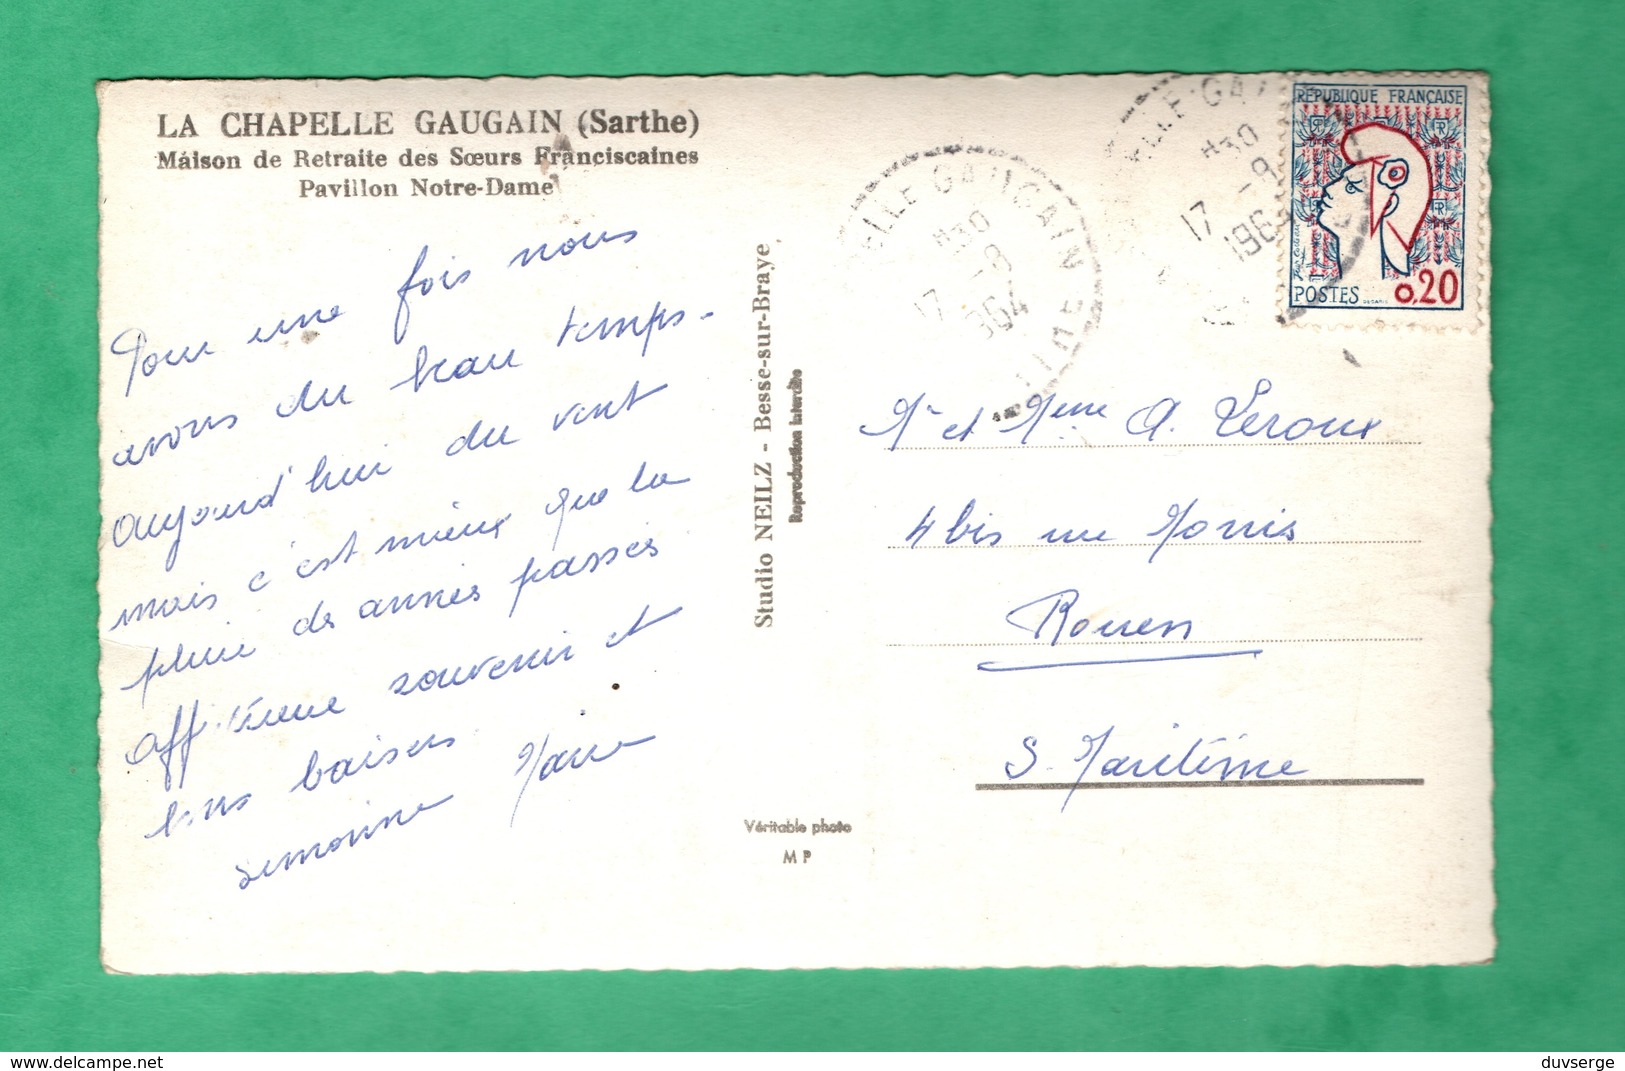 LA CHAPELLE GAUGAIN (Sarthe)
Maison de Retraite des Sœurs Franciscaines
Pavillon Notre-Dame
Pour une fois nous
avons du beau temps.
aujourd'hui du vent
mais c'est mieux que la
pluie des années passées
affectueux souvenir et
bons baisers
Simonne Marie
Studio NEILZ - Besse-sur-Braye
Reproduction interdite
Véritable photo
M P
ELLE GAUGAIN
H30
17 -8
964
ELLE GA
H30
17 -8
196
RÉPUBLIQUE FRANÇAISE
POSTES 0,20
Mr et Mme A. Leroux
4 bis rue Morris
Rouen
S. Maritime
delcampe.net
duvserge